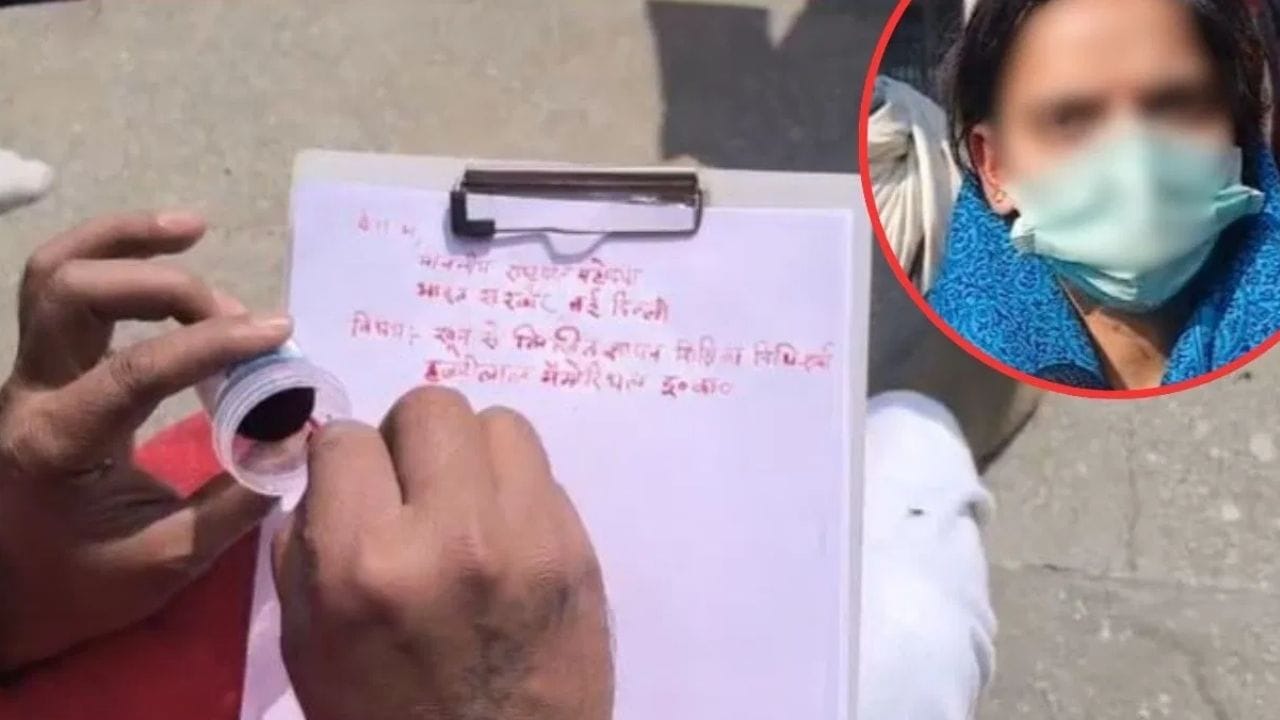 सेवा में,
माननीय प्रधान महोदय
भारत सरकार नई दिल्ली
विषय:- खून से लिखित ज्ञापन
मेमोरियल इ०का०